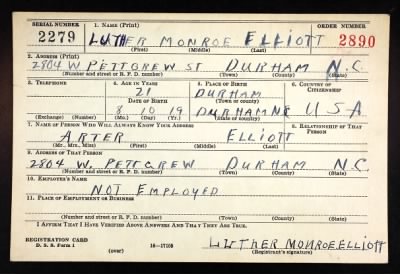 SERIAL NUMBER 1. NAME (Print) ORDER NUMBER
2279 LUTHER MONROE ELLIOTT 2890
(First) (Middle) (Last)
2. ADDRESS (Print)
2804 W. PETTGREW ST DURHAM N.C.
(Number and street or R. F. D. number) (Town) (County) (State)
3. TELEPHONE 4. AGE IN YEARS 5. PLACE OF BIRTH 6. COUNTRY OF CITIZENSHIP
21 DURHAM
DATE OF BIRTH (Town or county)
8 10 19 DURHAM NC USA
(Exchange) (Number) (Mo.) (Day) (Yr.) (State or country)
7. NAME OF PERSON WHO WILL ALWAYS KNOW YOUR ADDRESS 8. RELATIONSHIP OF THAT PERSON
ARTER ELLIOTT
(Mr., Mrs., Miss) (First) (Middle) (Last)
9. ADDRESS OF THAT PERSON
2804 W. PETTGREW DURHAM N.C.
(Number and street or R. F. D. number) (Town) (County) (State)
10. EMPLOYER'S NAME
NOT EMPLOYED
11. PLACE OF EMPLOYMENT OR BUSINESS
(Number and street or R. F. D. number) (Town) (County) (State)
I AFFIRM THAT I HAVE VERIFIED ABOVE ANSWERS AND THAT THEY ARE TRUE.
REGISTRATION CARD
D. S. S. Form 1 (over) 16—17105 LUTHER MONROE ELLIOTT
(Registrant's signature)